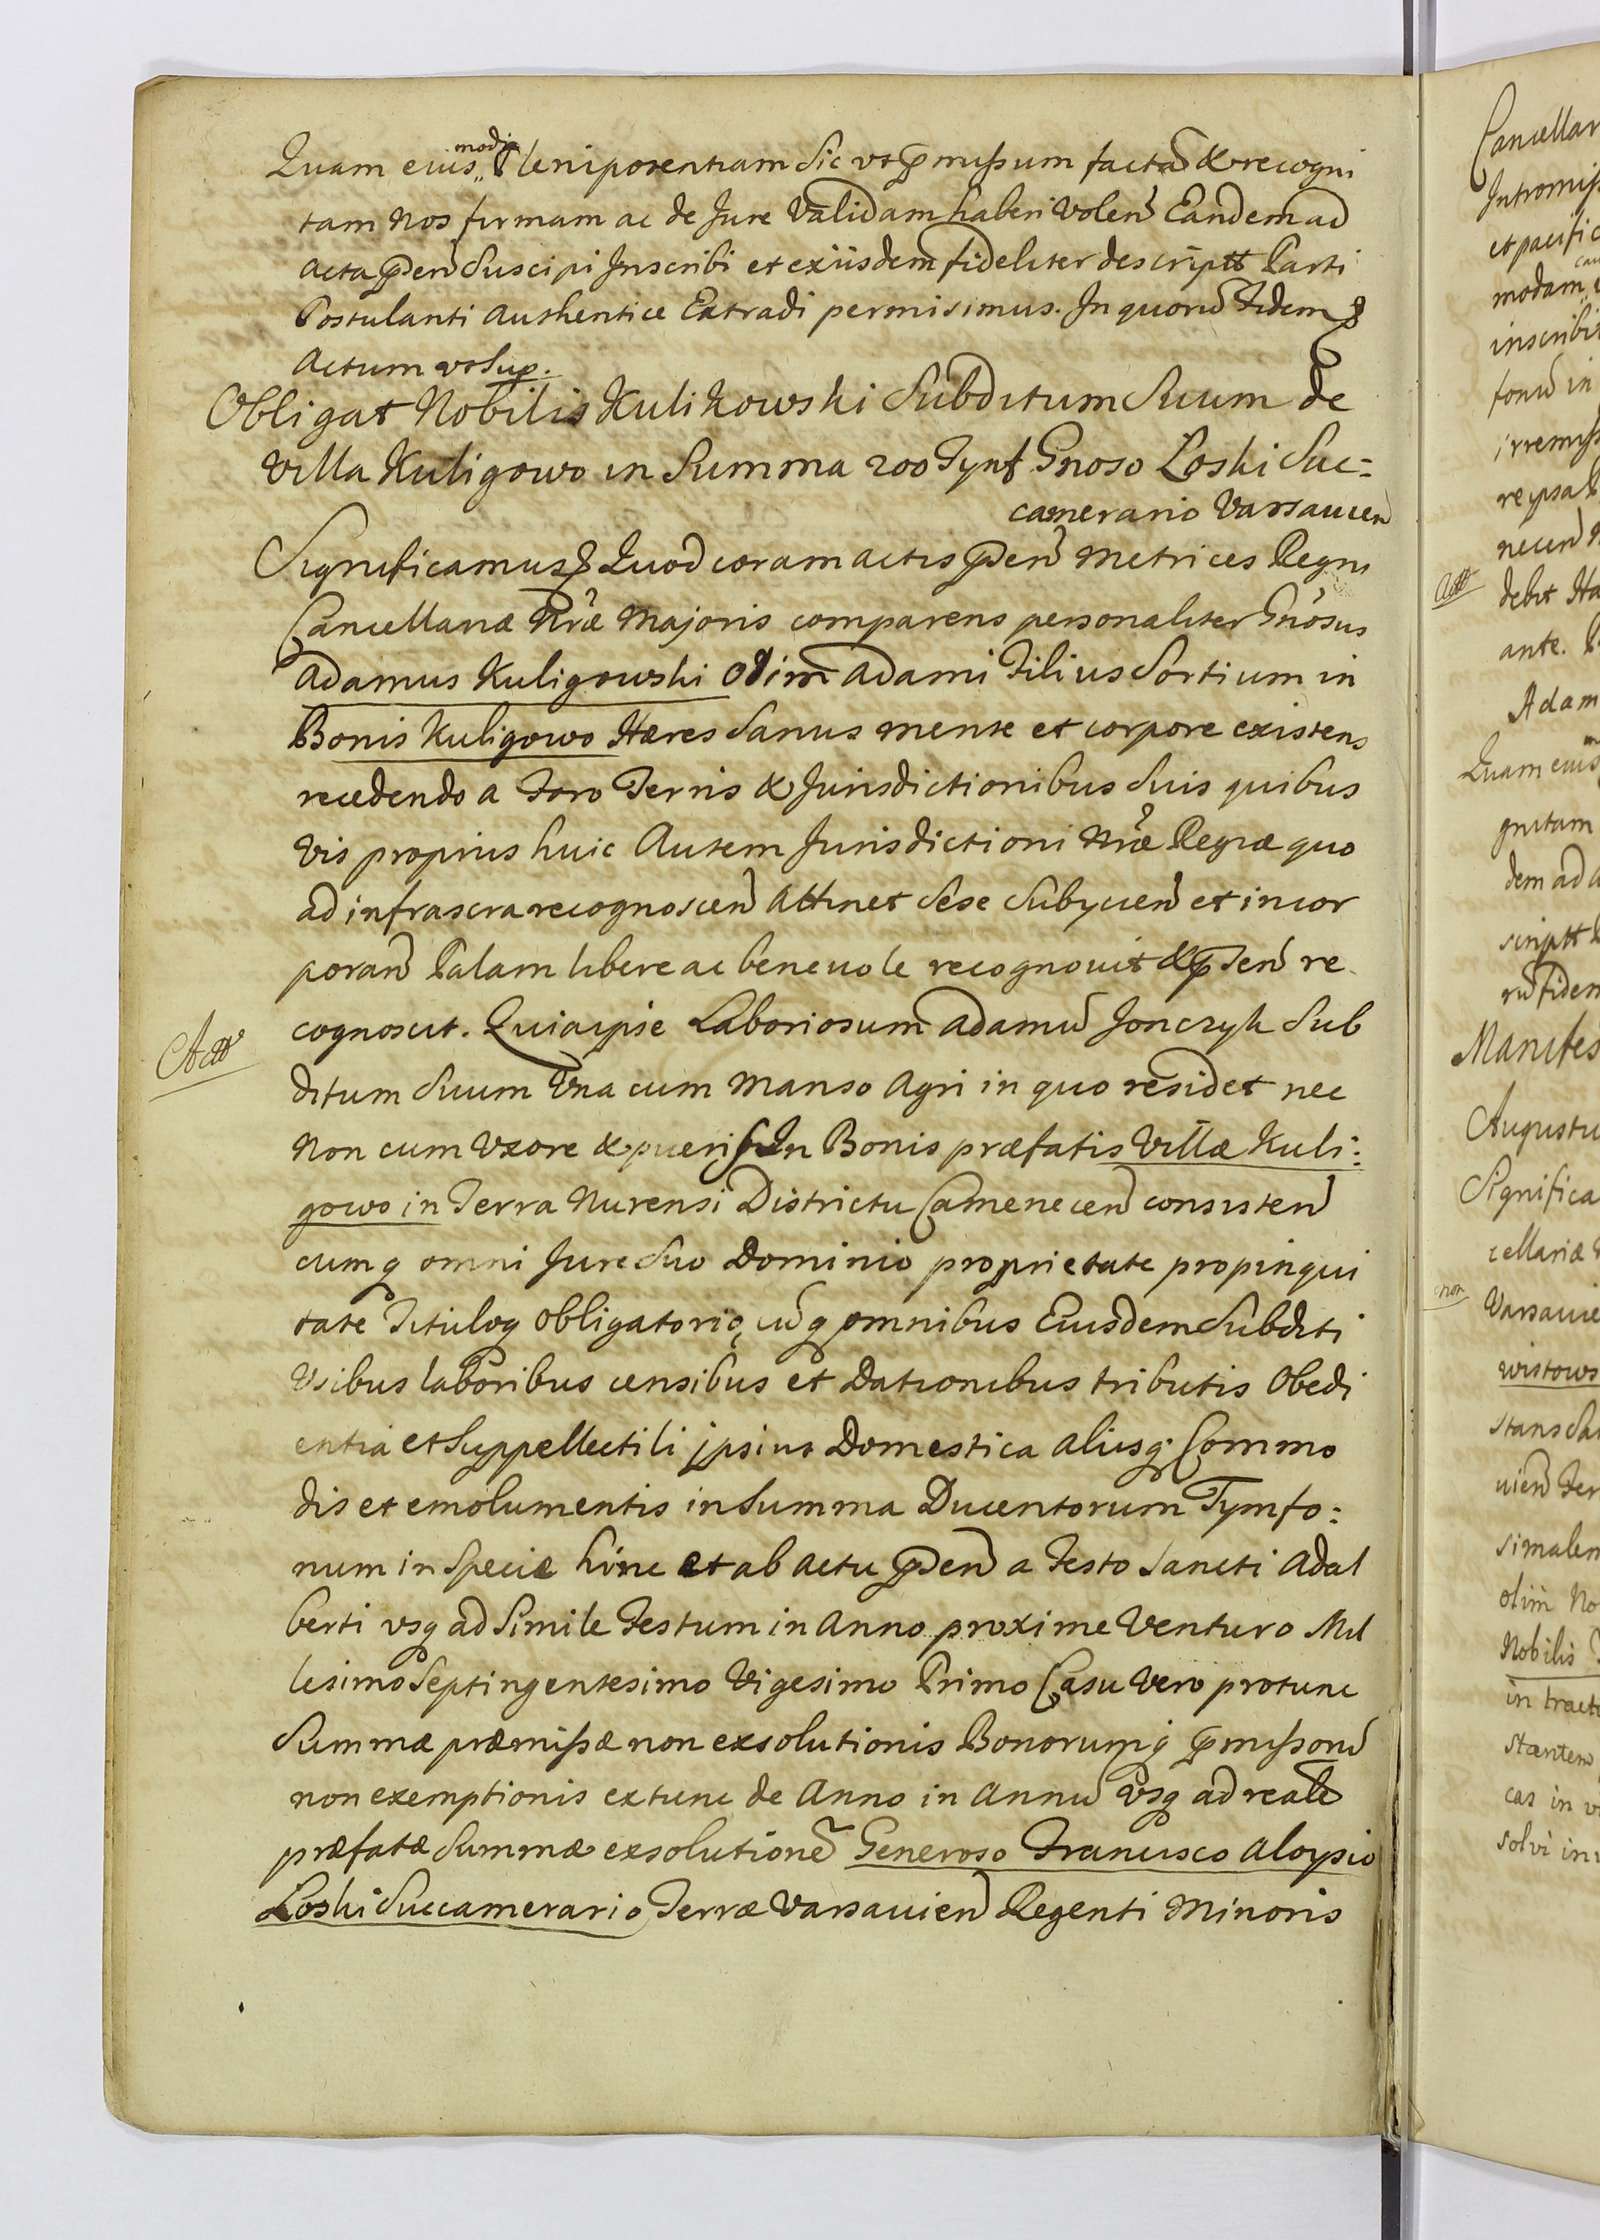 Quam eius modi Plenipotentiam Sic vt p̱missum factã & recogni
tam Nos firmam ac de Jure Validam haberi Volen̄ Eandem ad
acta p̱n̄ Suscipi Inscribi et ex iisdem fideliter descriptt Parti
Postulanti Authentice Extradi permisimus. In quorũ Fidem
Actum vt Sup.
Obligat Nobilis Kulikowski Subditum Suum de
Villa Kuligowo in Summa 200 Tynf Gnoso Loski Suc=
camerario Varsauien
Significamus Quod coram actis p̱n̄ Metrices Regni
Cancellariæ Nr̃æ Majoris comparens personaliter Gñosus
Adamus Kuligowski olim Adami Filius Sortium in
Bonis Kuligowo Hæres Sanus mente et corpore existens
recedendo a Foro Terris & Jurisdictionibus Suis quibus
Vis proprius huic Autem Jurisdictioni Nr̃æ Regiæ quo
ad infrascra recognoscen̄ Attinet Sese Subycien̄ et incor
poran̄ Palam libere ac beneuole recognouit & p̱n̄ re
cognoscit. Quia ipse Laboriosum Adamũ Jonczyk Sub
Att
ditum Suum Vna cum Manso Agri in quo residet nec
Non cum Vxore & pueris In Bonis præfatis Villæ Kuli=
gowo in Terra Nurensi Districtu Camenecen̄ consisten̄
cumq omni Jure Suo Dominio proprietate propinqui
tate Tituloq obligatorio cũq omnibus Eiusdem Subditi
Vsibus laboribus censibus et Dationibus tributis Obedi
entia et Suppellectili jpsius Domestica aliisq Commo
dis et emolumentis in Summa Ducentorum Tymfo=
num in Specie hinc et ab actu p̱n̄ a Festo Sancti Adal
berti vsq ad Simile Festum in Anno proxime Venturo Mil
lesimo Septingentesimo Vigesimo Primo Casu Vero protunc
Summæ præmissæ non exsolutionis Bonorumq p̱missorũ
non exemptionis extunc de Anno in Annũ Vsq ad realẽ
præfatæ Summæ exsolutionẽ Generoso Francisco Aloysio
Loski Succamerario Terræ Varsauien̄ Regenti Minoris
Cancellar
Intromiss
et pacific
modam
inscribi
forũ in
irremiss
re ipsa
necen̄
Att
debit
ante.
Adam
Quam eius
gnitam
dem ad a
scriptt
rũ fidem
Manifes
Augustu
Significa
cellariæ
non
Varsauie
wistows
stans Sa
uien̄ Ter
simalem
olim No
Nobilis
in tractu
cas in
solvi in